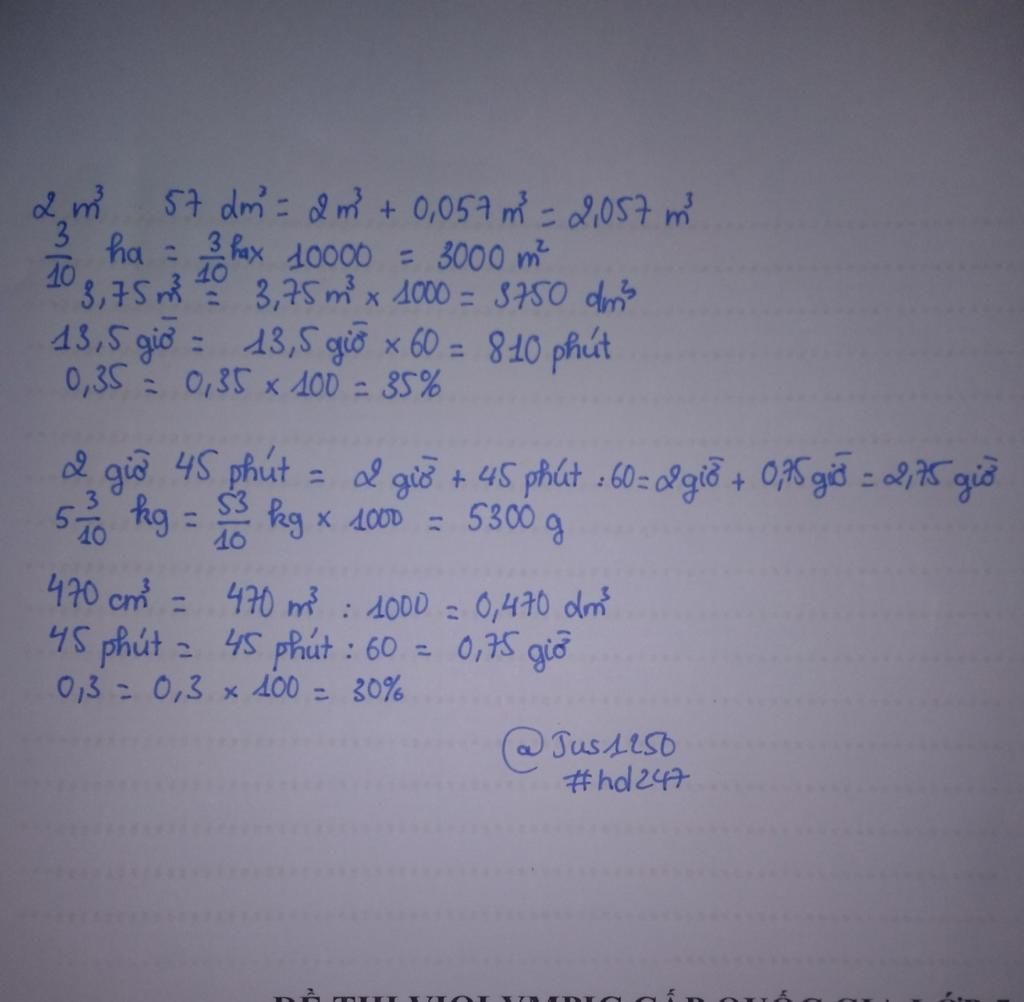 2 m³ 57 dm³ = 2m³ + 0,057 m³ = 2,057 m³
3/10 ha = 3/10 ha x 10000 = 3000 m²
3,75 m³ = 3,75 m³ x 1000 = 3750 dm³
13,5 giờ = 13,5 giờ x 60 = 810 phút
0,35 = 0,35 x 100 = 35%
2 giờ 45 phút = 2 giờ + 45 phút : 60 = 2 giờ + 0,75 giờ = 2,75 giờ
5 3/10 kg = 53/10 kg x 1000 = 5300 g
470 cm³ = 470 m³ : 1000 = 0,470 dm³
45 phút = 45 phút : 60 = 0,75 giờ
0,3 = 0,3 x 100 = 30%
@Jus1250
#hd247
ĐỀ THI VIOLYMPIC CẤP QUỐC GIA LỚP